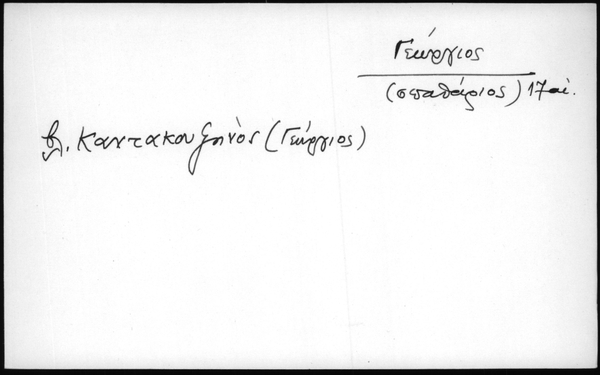 Γεώργιος
(σπαθάριος) 17 αἰ.
βλ. Καντακουζηνὸς (Γεώργιος)